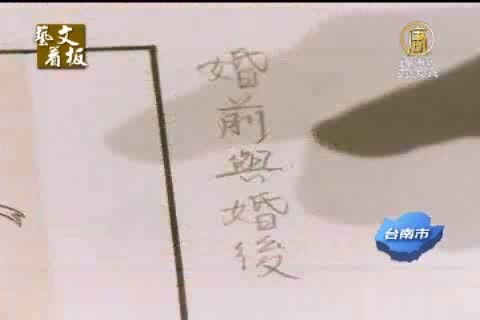 藝文
看板
婚前與婚後
台南市